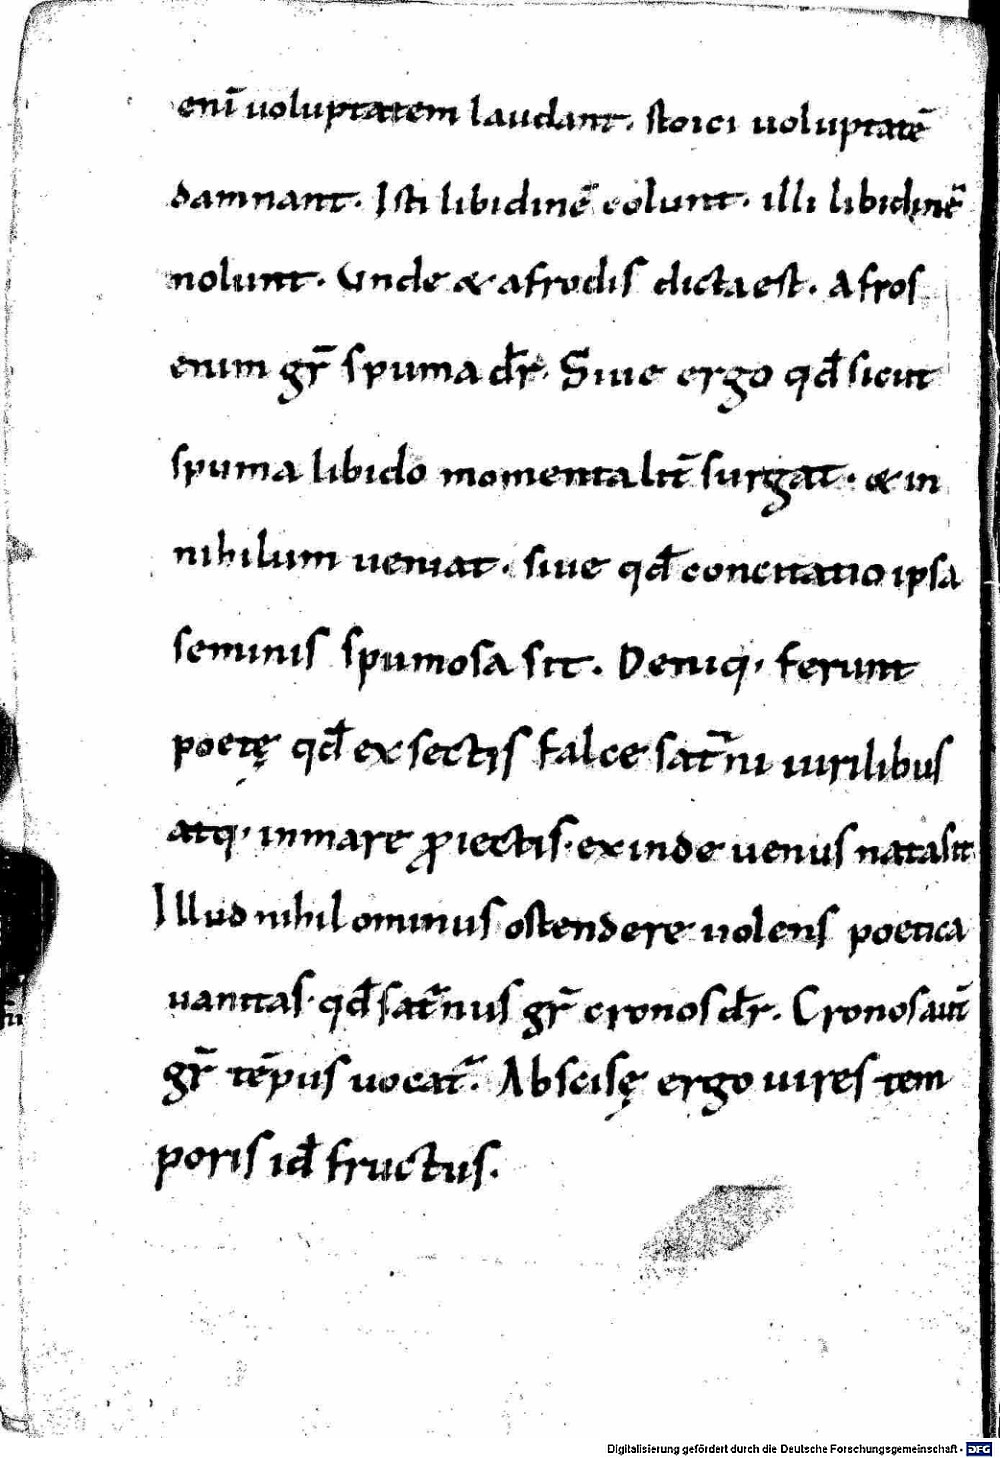 enī uoluptatem laudant. stoici uoluptatē
damnant. Isti libidinē colunt. illi libidinē
nolunt. Unde & afrodis dicta est. Afros
enim gr̄ spuma dr̄. Siue ergo qđ sicut
spuma libido momentalit̄ surgat. & in
nihilum ueniat. siue qđ concitatio ipsa
seminis spumosa sit. Deniq. ferunt
poetę qđ exsectis falce sat̄ni uirilibus
atq. in mare ꝓiectis. exinde uenus nata sit
Illud nihilominus ostendere uolens poetica
uanitas. qđ sat̄nus gr̄ cronos dr̄. Cronos aut̄
gr̄ tēpus uocat̄. Abscisę ergo uires tem
poris id̄ fructus.
Digitalisierung gefördert durch die Deutsche Forschungsgemeinschaft - DFG